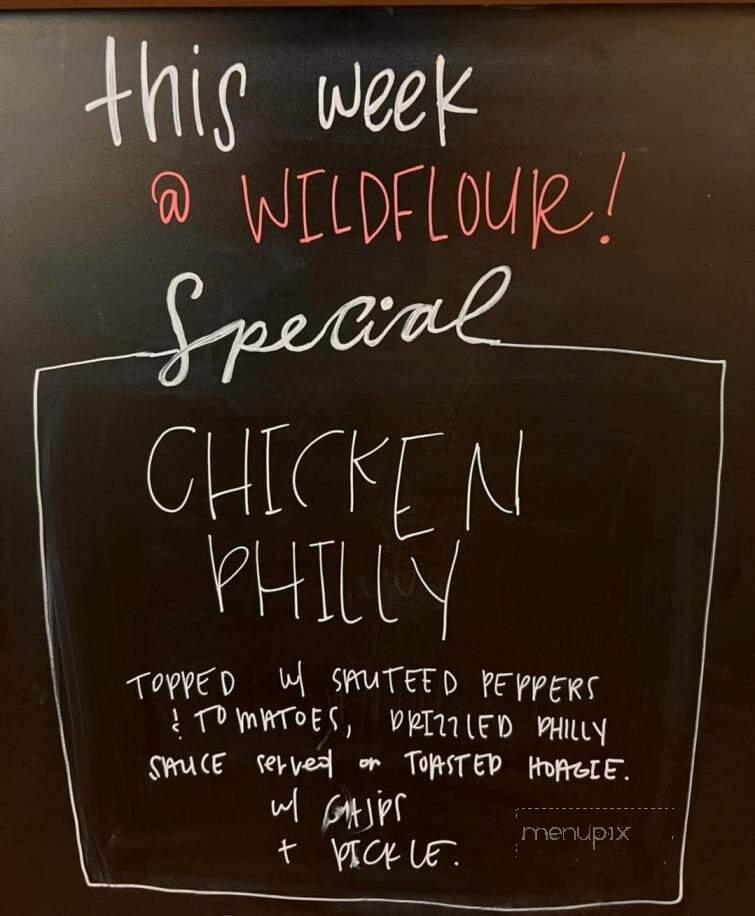 this week
@ WILDFLOUR!
Special
CHICKEN
PHILLY
TOPPED w/ SAUTEED PEPPERS
& TOMATOES, DRIZZLED PHILLY
SAUCE served on TOASTED HOAGIE.
w/ CHIPS
+ PICKLE.
menupix